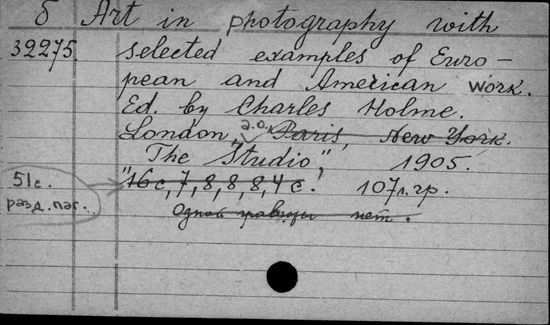 б Art in photography with
39275. selected examples of Euro-
pean and American work.
Ed. by Charles Holme.
London, a.o., Paris, New York.
"The Studio", 1905.
51 с. разд. паг.
16 с, 7, 8, 8, 8, 4 с. 107 л. гр.
Одной гравюры нет.